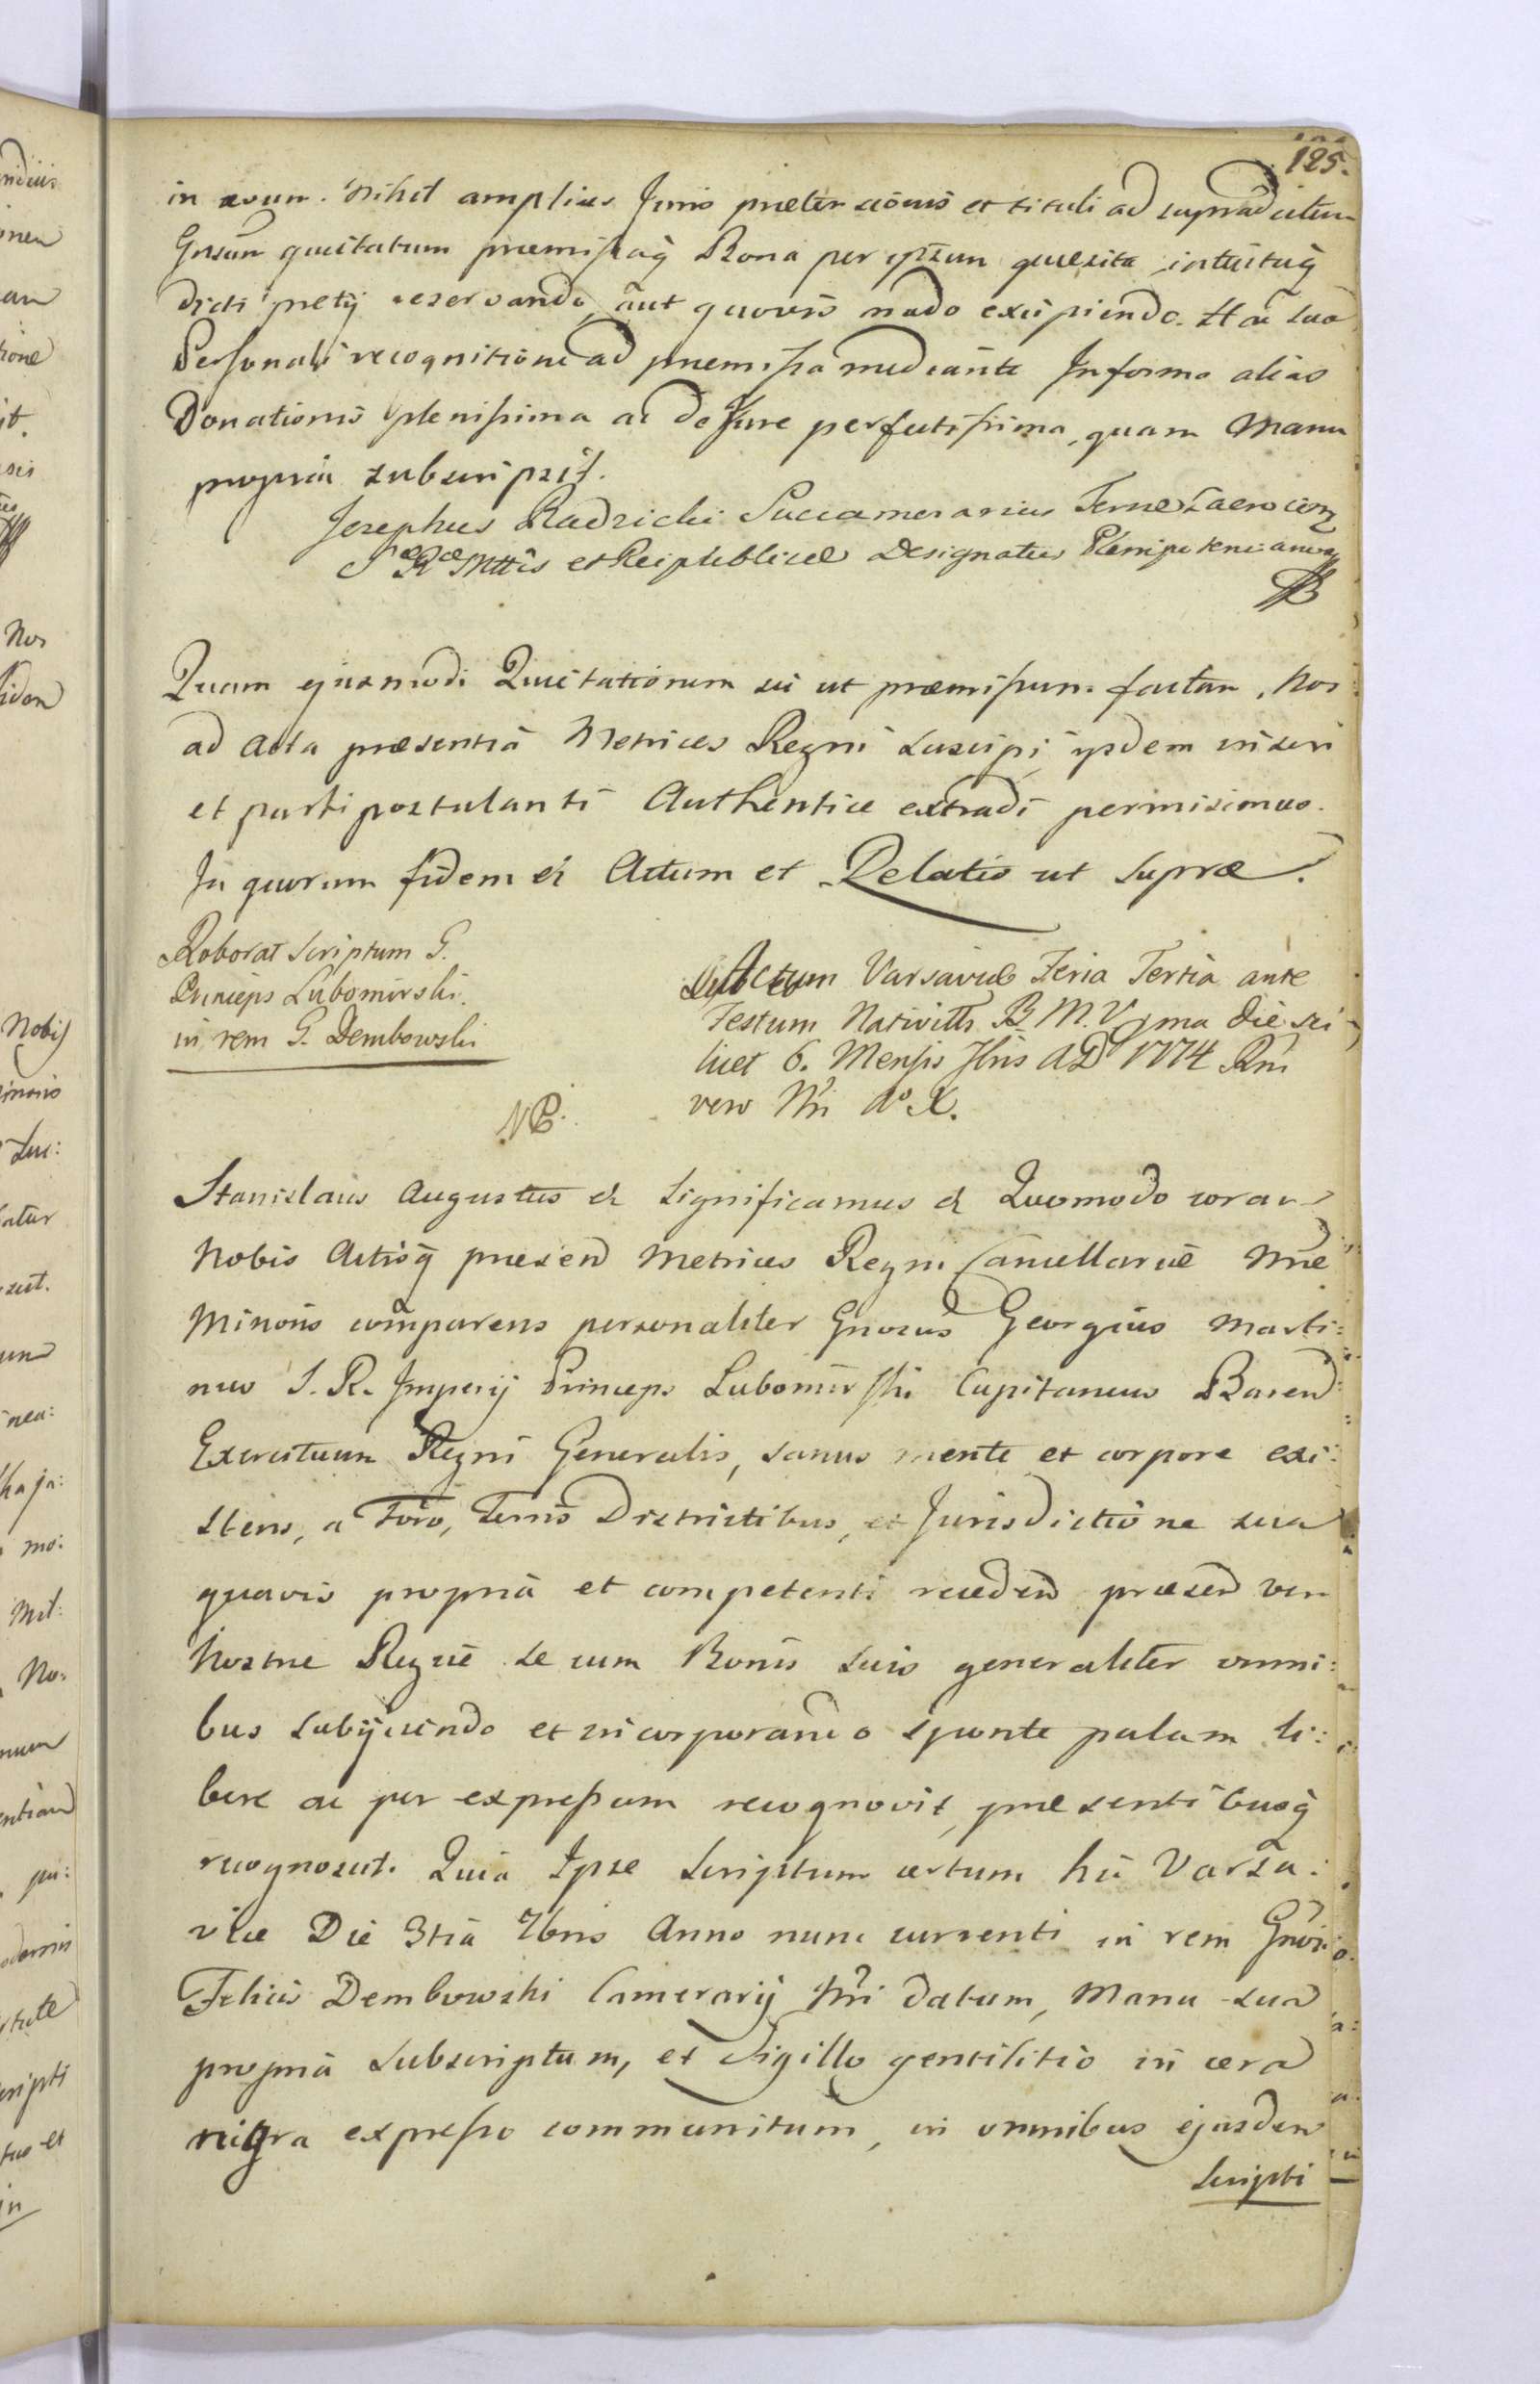 125.
in rerum. Nihil amplius Juris prætensionis et tituli ad supradictum
Gnsum quietatum præmissaq̃ Bona per ipsum quæsita intuituq̃
dicti pretij reservando, aut quovis modo excipiendo. Hac sua
Personali recognitione ad præmissa mediante In forma alias
Donationis plenissima ac de Jure perfectissima, quam Manu
propria subscripsit.
Josephus Radzicki Succamerarius Terræ Zacrocim
S R Mttis et Reipublicæ Designatus Plenipotenciarius
Quam ejusmodi Quietationem sic ut præmissum factam, Nos
ad Acta præsentia Metrices Regni suscipi, ijsdem inseri
et parti postulanti Authentice extradi permisimus.
In quorum fidem et Actum et Relatio ut supra.
Roborat scriptum G.
Princeps Lubomirski
in rem G. Dembowski
Actum Varsaviæ Feria Tertia ante
Festum Nativitts B. M. V. die sci
licet 6. Mensis 7bris AD 1774 Rni
vero Nri Ao X.
NB.
Stanislaus Augustus et significamus et Quomodo coram
Nobis Actisq̃ præsen Metrices Regni Cancellariæ Nræ
Minoris comparens personaliter Gnosus Georgius Marti:
nus S. R. Imperij Princeps Lubomirski Capitaneus Baren
Exercituum Regni Generalis, sanus mente et corpore exi:
stens, a Foro, Terris Districtibus, et Jurisdictione sua
quavis propria et competenti receden præsen vero
Nostræ Regiæ se cum Bonis suis generaliter omni:
bus subijciendo et incorporando sponte palam li:
bere ac per expressum recognovit, præsentibusq̃
recognoscit. Quia Ipse Scriptum certum hic Varsa:
viæ Die 3tia 7bris Anno nunc currenti in rem Gnosi
Felicis Dembowski Camerarij Nri datum, Manu sua
propria subscriptum, et Sigillo gentilitio in cera
nigra expresso communitum, in omnibus ejusdem
Scripti